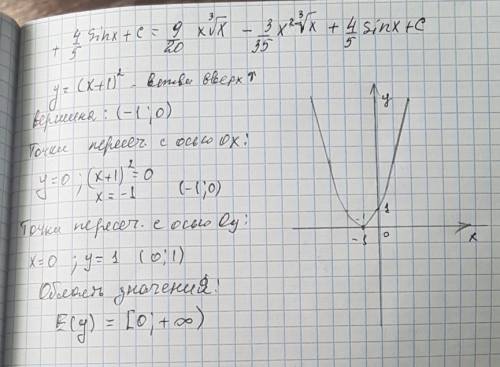 + 4/5 sinx + C = 9/20 x∛x − 3/35 x²∛x + 4/5 sinx + C
y = (x+1)² - ветви вверх ↑
вершина: (-1; 0)
Точки пересеч. с осью Ox:
y=0 ; (x+1)² = 0
x = -1 (-1; 0)
Точки пересеч. с осью Oy:
x=0 ; y = 1 (0; 1)
Область значений:
E(y) = [0; +∞)
y
1
-1 0 x